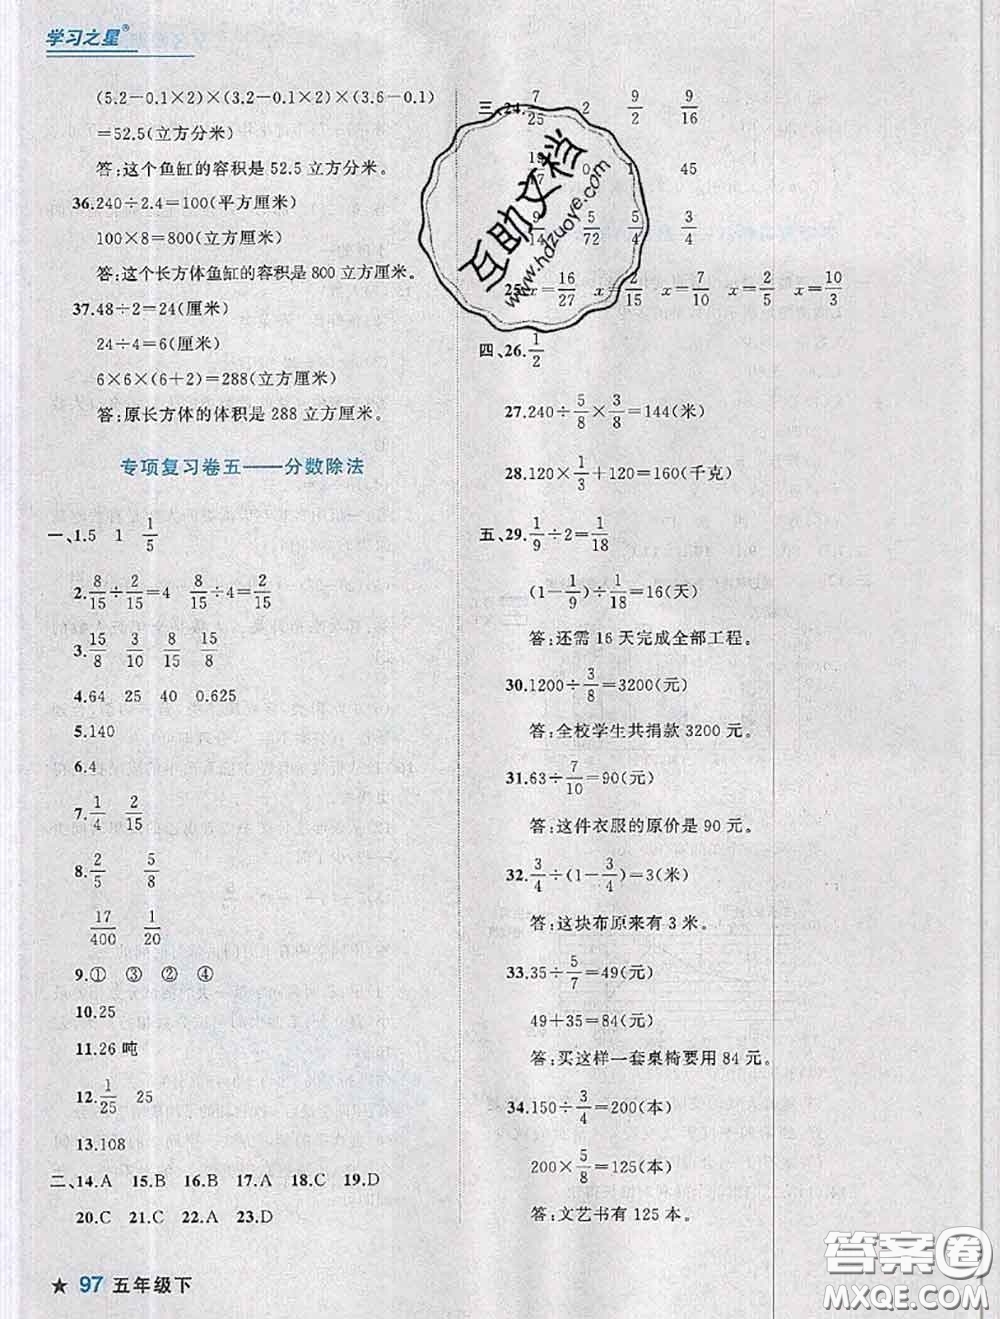 学习之星®
(5.2-0.1×2)×(3.2-0.1×2)×(3.6-0.1)
=52.5(立方分米)
答:这个鱼缸的容积是 52.5 立方分米。
36.240÷2.4=100(平方厘米)
100×8=800(立方厘米)
答:这个长方体鱼缸的容积是 800 立方厘米。
37.48÷2=24(厘米)
24÷4=6(厘米)
6×6×(6+2)=288(立方厘米)
答:原长方体的体积是 288 立方厘米。
专项复习卷五——分数除法
一、1.5 1 1/5
2.8/15÷2/15=4 8/15÷4=2/15
3.15/8 3/10 8/15 15/8
4.64 25 40 0.625
5.140
6.4
7.1/4 2/15
8.2/5 5/8
17/400 1/20
9.① ③ ② ④
10.25
11.26 吨
12.1/25 25
13.108
二、14.A 15.B 16.B 17.A 18.C 19.D
20.C 21.C 22.A 23.D
三、24.7/25 2 9/2 9/16
0 1 45
9/14 5/72 5/4 3/4
25.x=16/27 x=2/15 x=7/10 x=2/5 x=10/3
四、26.1/2
27.240÷5/8×3/8=144(米)
28.120×1/3+120=160(千克)
五、29.1/9÷2=1/18
(1-1/9)÷1/18=16(天)
答:还需 16 天完成全部工程。
30.1200÷3/8=3200(元)
答:全校学生共捐款 3200 元。
31.63÷7/10=90(元)
答:这件衣服的原价是 90 元。
32.3/4÷(1-3/4)=3(米)
答:这块布原来有 3 米。
33.35÷5/7=49(元)
49+35=84(元)
答:买这样一套桌椅要用 84 元。
34.150÷3/4=200(本)
200×5/8=125(本)
答:文艺书有 125 本。
★ 97 五年级下
互助文档
www.hdzuoye.com
答案圈
MXQE.COM